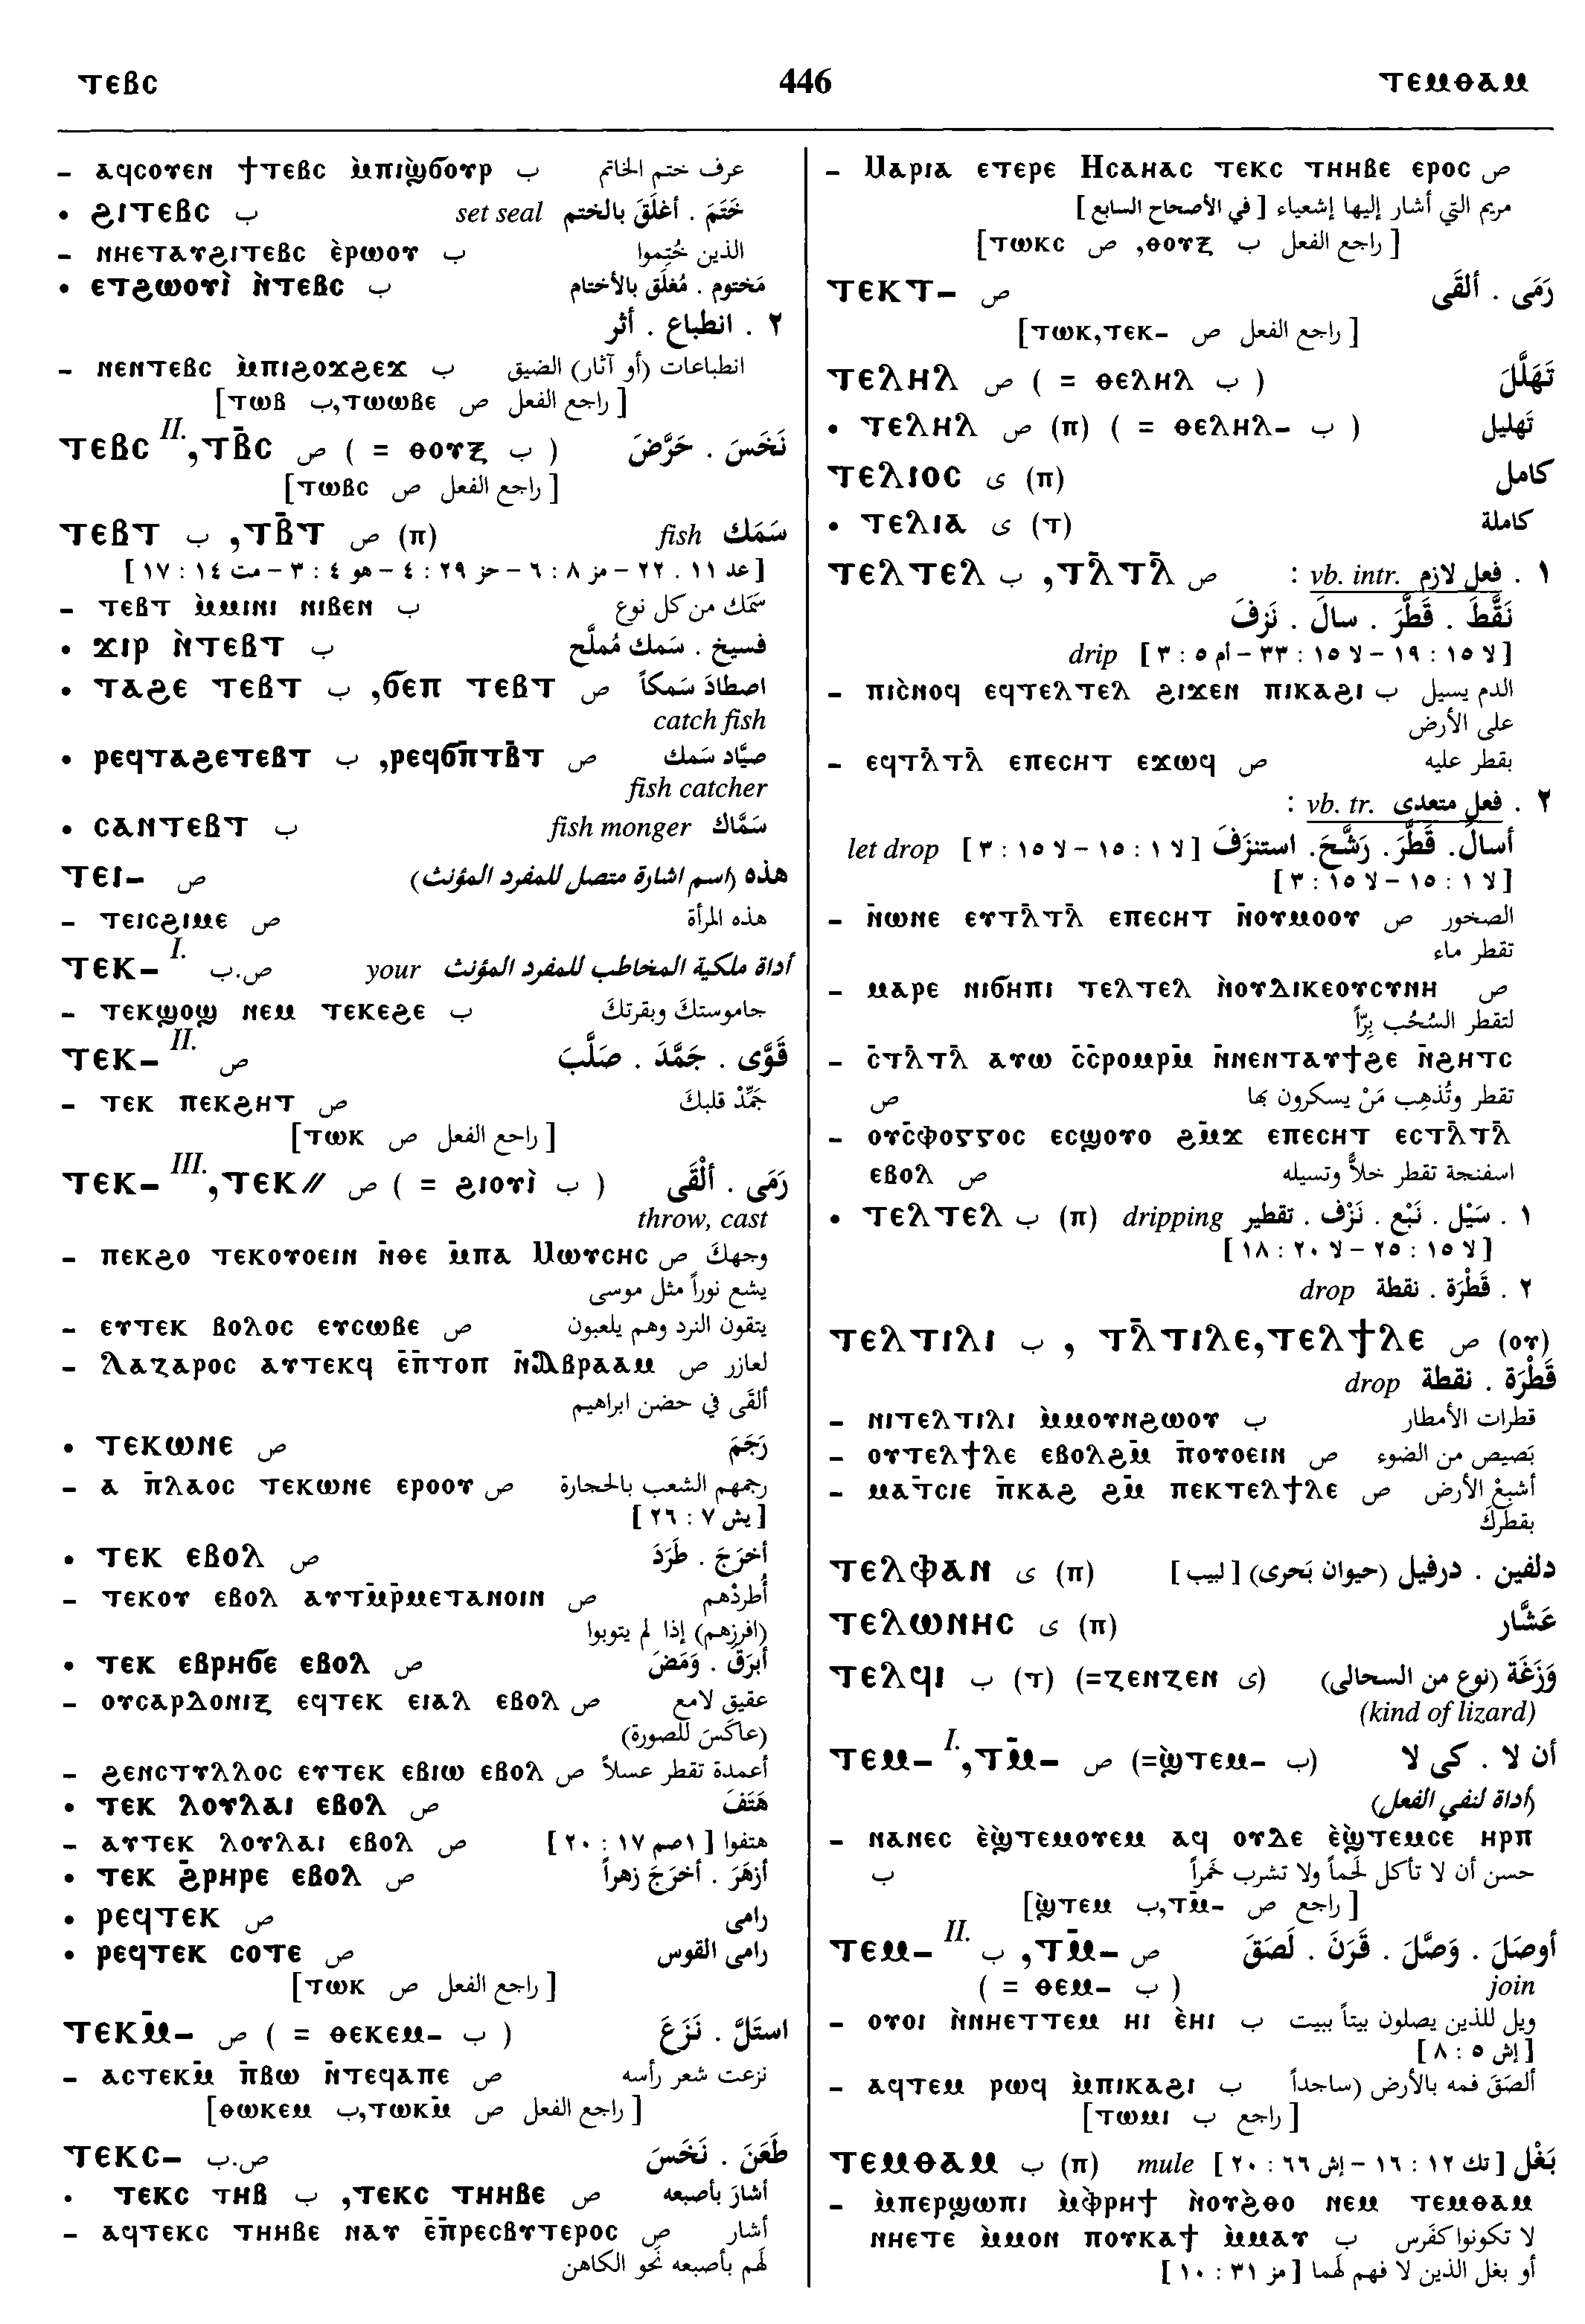 ⲧⲉⲃⲥ 446 ⲧⲉⲙⲑⲁⲙ
– ⲁϥⲥⲟⲩⲉⲛ ϯⲧⲉⲃⲥ ⲙ̀ⲡⲓϣϭⲟⲩⲣ ب عرف ختم الخاتم
• ϩⲓⲧⲉⲃⲥ ب set seal خَتَمَ . أغلَقَ بالختم
– ⲛⲏⲉⲧⲁⲩϩⲓⲧⲉⲃⲥ ⲉ̀ⲣⲱⲟⲩ ب الذين خُتِموا
• ⲉⲧϩⲱⲟⲩⲓ̀ ⲛ̀ⲧⲉⲃⲥ ب مَختوم . مُغلَق بالأختام
٢ . انطباع . أثر
– ⲛⲉⲛⲧⲉⲃⲥ ⲙ̀ⲡⲓϩⲟϫϩⲉϫ ب انطباعات (أو آثار) الضيق
[ راجع الفعل ص ⲧⲱⲱⲃⲉ, ب ⲧⲱⲃ]
ⲧⲉⲃⲥ II. ,ⲧⲃ̄ⲥ ص ( = ⲑⲟⲩⲝ ب ) نَخَسَ . حَرَّضَ
[ راجع الفعل ص ⲧⲱⲃⲥ]
ⲧⲉⲃⲧ ب ,ⲧⲃ̄ⲧ ص (ⲡ) fish سَمَك
[عد ١١ . ٢٢ – مز ٨ : ٦ – حز ٢٩ : ٤ – هو ٤ : ٣ – مت ١٤ : ١٧]
– ⲧⲉⲃⲧ ⲙ̀ⲙⲓⲛⲓ ⲛⲓⲃⲉⲛ ب سَمَك من كل نوع
• ϫⲓⲣ ⲛ̀ⲧⲉⲃⲧ ب فسيخ . سَمك مُملَّح
• ⲧⲁϩⲉ ⲧⲉⲃⲧ ب ,ϭⲉⲡ ⲧⲉⲃⲧ ص اصطادَ سَمكاً
catch fish
• ⲣⲉϥⲧⲁϩⲉⲧⲉⲃⲧ ب ,ⲣⲉϥϭⲡ̄ⲧⲃ̄ⲧ ص صيَّاد سَمك
fish catcher
• ⲥⲁⲛⲧⲉⲃⲧ ب fish monger سَمَّاك
ⲧⲉⲓ– ص هذه (اسم اشارة متصل للمفرد المؤنث)
– ⲧⲉⲓⲥϩⲓⲙⲉ ص هذه المرأة
ⲧⲉⲕ– I. ص.ب your أداة ملكية المخاطب للمفرد المؤنث
– ⲧⲉⲕϣⲟϣ ⲛⲉⲙ ⲧⲉⲕⲉϩⲉ ب جاموستكَ وبقرتكَ
ⲧⲉⲕ– II. ص قَوَّى . جَمَّدَ . صَلَّبَ
– ⲧⲉⲕ ⲡⲉⲕϩⲏⲧ ص جَمِّدْ قلبكَ
[ راجع الفعل ص ⲧⲱⲕ]
ⲧⲉⲕ– III. ,ⲧⲉⲕ// ص ( = ϩⲓⲟⲩⲓ̀ ب ) رَمَى . ألْقَى
throw, cast
– ⲡⲉⲕϩⲟ ⲧⲉⲕⲟⲩⲟⲉⲓⲛ ⲛ̄ⲑⲉ ⲙ̄ⲡⲁ Ⲙⲱⲩⲥⲏⲥ ص وجهكَ
يشع نوراً مثل موسى
– ⲉⲩⲧⲉⲕ ⲃⲟⲗⲟⲥ ⲉⲩⲥⲱⲃⲉ ص يتقون النرد وهم يلعبون
– Ⲗⲁⲍⲁⲣⲟⲥ ⲁⲩⲧⲉⲕϥ ⲉ̄ⲡ̄ⲧⲟⲡ ⲛ̄Ⲁⲃⲣⲁⲁⲙ ص لعازر
ألقَى في حضن ابراهيم
• ⲧⲉⲕⲱⲛⲉ ص رَجَمَ
– ⲁ ⲡ̄ⲗⲁⲟⲥ ⲧⲉⲕⲱⲛⲉ ⲉⲣⲟⲟⲩ ص رجمهم الشعب بالحجارة
[يش ٧ : ٢٦]
• ⲧⲉⲕ ⲉⲃⲟⲗ ص أخرَجَ . طَرَدَ
– ⲧⲉⲕⲟⲩ ⲉⲃⲟⲗ ⲁⲩⲧⲙ̄ⲣ̄ⲙⲉⲧⲁⲛⲟⲓⲛ ص أُطردْهم
(افرزهم) إذا لم يتوبوا
• ⲧⲉⲕ ⲉⲃⲣⲏϭⲉ ⲉⲃⲟⲗ ص أبرَقَ . وَمَضَ
– ⲟⲩⲥⲁⲣⲇⲟⲛⲓⲝ ⲉϥⲧⲉⲕ ⲉⲓⲁⲗ ⲉⲃⲟⲗ ص عقيق لامع
(عاكَسَ للصورة)
– ϩⲉⲛⲥⲧⲩⲗⲗⲟⲥ ⲉⲩⲧⲉⲕ ⲉⲃⲓⲱ ⲉⲃⲟⲗ ص أعمدة تقطر عسلاً
• ⲧⲉⲕ ⲗⲟⲩⲗⲁⲓ ⲉⲃⲟⲗ ص هَتَفَ
– ⲁⲩⲧⲉⲕ ⲗⲟⲩⲗⲁⲓ ⲉⲃⲟⲗ ص هتفوا [١صم ١٧ : ٢٠]
• ⲧⲉⲕ ϩ̄ⲣⲏⲣⲉ ⲉⲃⲟⲗ ص أزهَرَ . أخرَجَ زهراً
• ⲣⲉϥⲧⲉⲕ ص رامى
• ⲣⲉϥⲧⲉⲕ ⲥⲟⲧⲉ ص رامى القوس
[ راجع الفعل ص ⲧⲱⲕ]
ⲧⲉⲕⲙ̄– ص ( = ⲑⲉⲕⲉⲙ– ب ) استَلَّ . نَزَعَ
– ⲁⲥⲧⲉⲕⲙ̄ ⲡ̄ⲃⲱ ⲛ̄ⲧⲉϥⲁⲡⲉ ص نزعت شعر رأسه
[ راجع الفعل ص ⲧⲱⲕⲙ̄, ب ⲑⲱⲕⲉⲙ]
ⲧⲉⲕⲥ– ص.ب طَعَنَ . نَخَسَ
• ⲧⲉⲕⲥ ⲧⲏⲃ ب ,ⲧⲉⲕⲥ ⲧⲏⲏⲃⲉ ص أشارَ بأصبعه
– ⲁϥⲧⲉⲕⲥ ⲧⲏⲏⲃⲉ ⲛⲁⲩ ⲉ̄ⲡ̄ⲣⲉⲥⲃⲩⲧⲉⲣⲟⲥ ص أشار
لهم بأصبعه نَحو الكاهن
– Ⲙⲁⲣⲓⲁ ⲉⲧⲉⲣⲉ Ⲏⲥⲁⲏⲁⲥ ⲧⲉⲕⲥ ⲧⲏⲏⲃⲉ ⲉⲣⲟⲥ ص
مريم التي أشار إليها إشعياء [في الأصحاح السابع]
[ راجع الفعل ب ⲑⲟⲩⲝ, ص ⲧⲱⲕⲥ]
ⲧⲉⲕⲧ– ص رَمَى . ألقَى
[ راجع الفعل ص ⲧⲱⲕ,ⲧⲉⲕ–]
ⲧⲉⲗⲏⲗ ص ( = ⲑⲉⲗⲏⲗ ب ) تَهَلَّلَ
• ⲧⲉⲗⲏⲗ ص (ⲡ) ( = ⲑⲉⲗⲏⲗ– ب ) تَهليل
ⲧⲉⲗⲓⲟⲥ ى (ⲡ) كامل
• ⲧⲉⲗⲓⲁ ى (ⲧ) كاملة
ⲧⲉⲗⲧⲉⲗ ب ,ⲧⲗ̄ⲧⲗ̄ ص ١ . فعل لازم vb. intr. :
نَقَّطَ . قَطَّرَ . سالَ . نَزفَ
drip [لا ١٥ : ١٩ – لا ١٥ : ٣٣ – أم ٥ : ٣]
– ⲡⲓⲥ̀ⲛⲟϥ ⲉϥⲧⲉⲗⲧⲉⲗ ϩⲓϫⲉⲛ ⲡⲓⲕⲁϩⲓ ب الدم يسيل
على الأرض
– ⲉϥⲧⲗ̄ⲧⲗ̄ ⲉⲡⲉⲥⲏⲧ ⲉϫⲱϥ ص بقطر عليه
٢ . فعل متعدى vb. tr. :
أسالَ. قَطَّرَ. رَشَّحَ. استنزَفَ [لا ١ : ١٥ – لا ١٥ : ٣] let drop
[لا ١ : ١٥ – لا ١٥ : ٣]
– ⲛ̄ⲱⲛⲉ ⲉⲩⲧⲗ̄ⲧⲗ̄ ⲉⲡⲉⲥⲏⲧ ⲛ̄ⲟⲩⲙⲟⲟⲩ ص الصخور
تقطر ماء
– ⲙⲁⲣⲉ ⲛⲓϭⲏⲡⲓ ⲧⲉⲗⲧⲉⲗ ⲛ̀ⲟⲩⲇⲓⲕⲉⲟⲩⲥⲩⲛⲏ ص
لتقطر السُحُب بِرّاً
– ⲥ̄ⲧⲗ̄ⲧⲗ̄ ⲁⲩⲱ ⲥ̄ⲥ̄ⲣⲟⲙⲣⲙ̄ ⲛ̄ⲛⲉⲛⲧⲁⲩϯϩⲉ ⲛ̄ϩⲏⲧⲥ
تقطر وتُذهِب مَنْ يسكرون بها ص
– ⲟⲩⲥ̄ⲫⲟⲅⲅⲟⲥ ⲉⲥϣⲟⲩⲟ ϩⲙ̄ϫ ⲉⲡⲉⲥⲏⲧ ⲉⲥⲧⲗ̄ⲧⲗ̄
ⲉⲃⲟⲗ ص اسفنجة تقطر خلاًّ وتسيله
• ⲧⲉⲗⲧⲉⲗ ب (ⲡ) dripping ١ . سَيْل . نَبْع . نَزْف . تقطير
[لا ١٥ : ٢٥ – لا ٢٠ : ١٨]
٢ . قَطْرَة . نقطة drop
ⲧⲉⲗⲧⲓⲗⲓ ب , ⲧⲗ̄ⲧⲓⲗⲉ,ⲧⲉⲗϯⲗⲉ ص (ⲟⲩ)
قَطْرَة . نقطة drop
– ⲛⲓⲧⲉⲗⲧⲓⲗⲓ ⲙ̀ⲙⲟⲩⲛϩⲱⲟⲩ ب قطرات الأمطار
– ⲟⲩⲧⲉⲗϯⲗⲉ ⲉⲃⲟⲗϩⲙ̄ ⲡ̄ⲟⲩⲟⲉⲓⲛ ص بَصيص من الضوء
– ⲙⲁⲧ̄ⲥⲓⲉ ⲡ̄ⲕⲁϩ ϩⲙ̄ ⲡⲉⲕⲧⲉⲗϯⲗⲉ ص أشبِعْ الأرض
بقطرِكَ
ⲧⲉⲗⲫⲁⲛ ى (ⲡ) دلفين . درفيل (حيوان بَحرى) [لبيب]
ⲧⲉⲗⲱⲛⲏⲥ ى (ⲡ) عَشَّار
ⲧⲉⲗϥⲓ ب (ⲧ) (=ⲍⲉⲛⲍⲉⲛ ى) وَزَغَة (نوع من السحالى)
(kind of lizard)
ⲧⲉⲙ– I. ,ⲧⲙ̄– ص (=ϣ̀ⲧⲉⲙ– ب) أن لا . كى لا
(أداة لنفي الفعل)
– ⲛⲁⲛⲉⲥ ⲉ̀ϣ̀ⲧⲉⲙⲟⲩⲉⲙ ⲁϥ ⲟⲩⲇⲉ ⲉ̀ϣ̀ⲧⲉⲙⲥⲉ ⲏⲣⲡ
حسن أن لا تأكل لَحماً ولا تشرب خَمراً ب
[ راجع ص ⲧⲙ̄–, ب ϣ̀ⲧⲉⲙ]
ⲧⲉⲙ– II. ب ,ⲧⲙ̄– ص أوصَلَ . وَصَّلَ . قَرَنَ . لَصَقَ
( = ⲑⲉⲙ– ب ) join
– ⲟⲩⲟⲓ ⲛ̀ⲛⲏⲉⲧⲧⲉⲙ ⲏⲓ ⲉ̀ⲏⲓ ب ويل للذين يصلون بيتاً ببيت
[إش ٥ : ٨]
– ⲁϥⲧⲉⲙ ⲣⲱϥ ⲙ̀ⲡⲓⲕⲁϩⲓ ب ألصَقَ فمه بالأرض (ساجداً
[ راجع ب ⲧⲱⲙⲓ]
ⲧⲉⲙⲑⲁⲙ ب (ⲡ) mule بَغْل [تك ١٢ : ١٦ – إش ٦٦ : ٢٠]
– ⲙ̀ⲡⲉⲣϣⲱⲡⲓ ⲙ̀ⲫⲣⲏϯ ⲛ̀ⲟⲩϩ̀ⲑⲟ ⲛⲉⲙ ⲧⲉⲙⲑⲁⲙ
ⲛⲏⲉⲧⲉ ⲙ̀ⲙⲟⲛ ⲡⲟⲩⲕⲁϯ ⲙ̀ⲙⲁⲩ ب لا تكونوا كفَرس
أو بغل الذين لا فهم لَهما [مز ٣١ : ١٠]